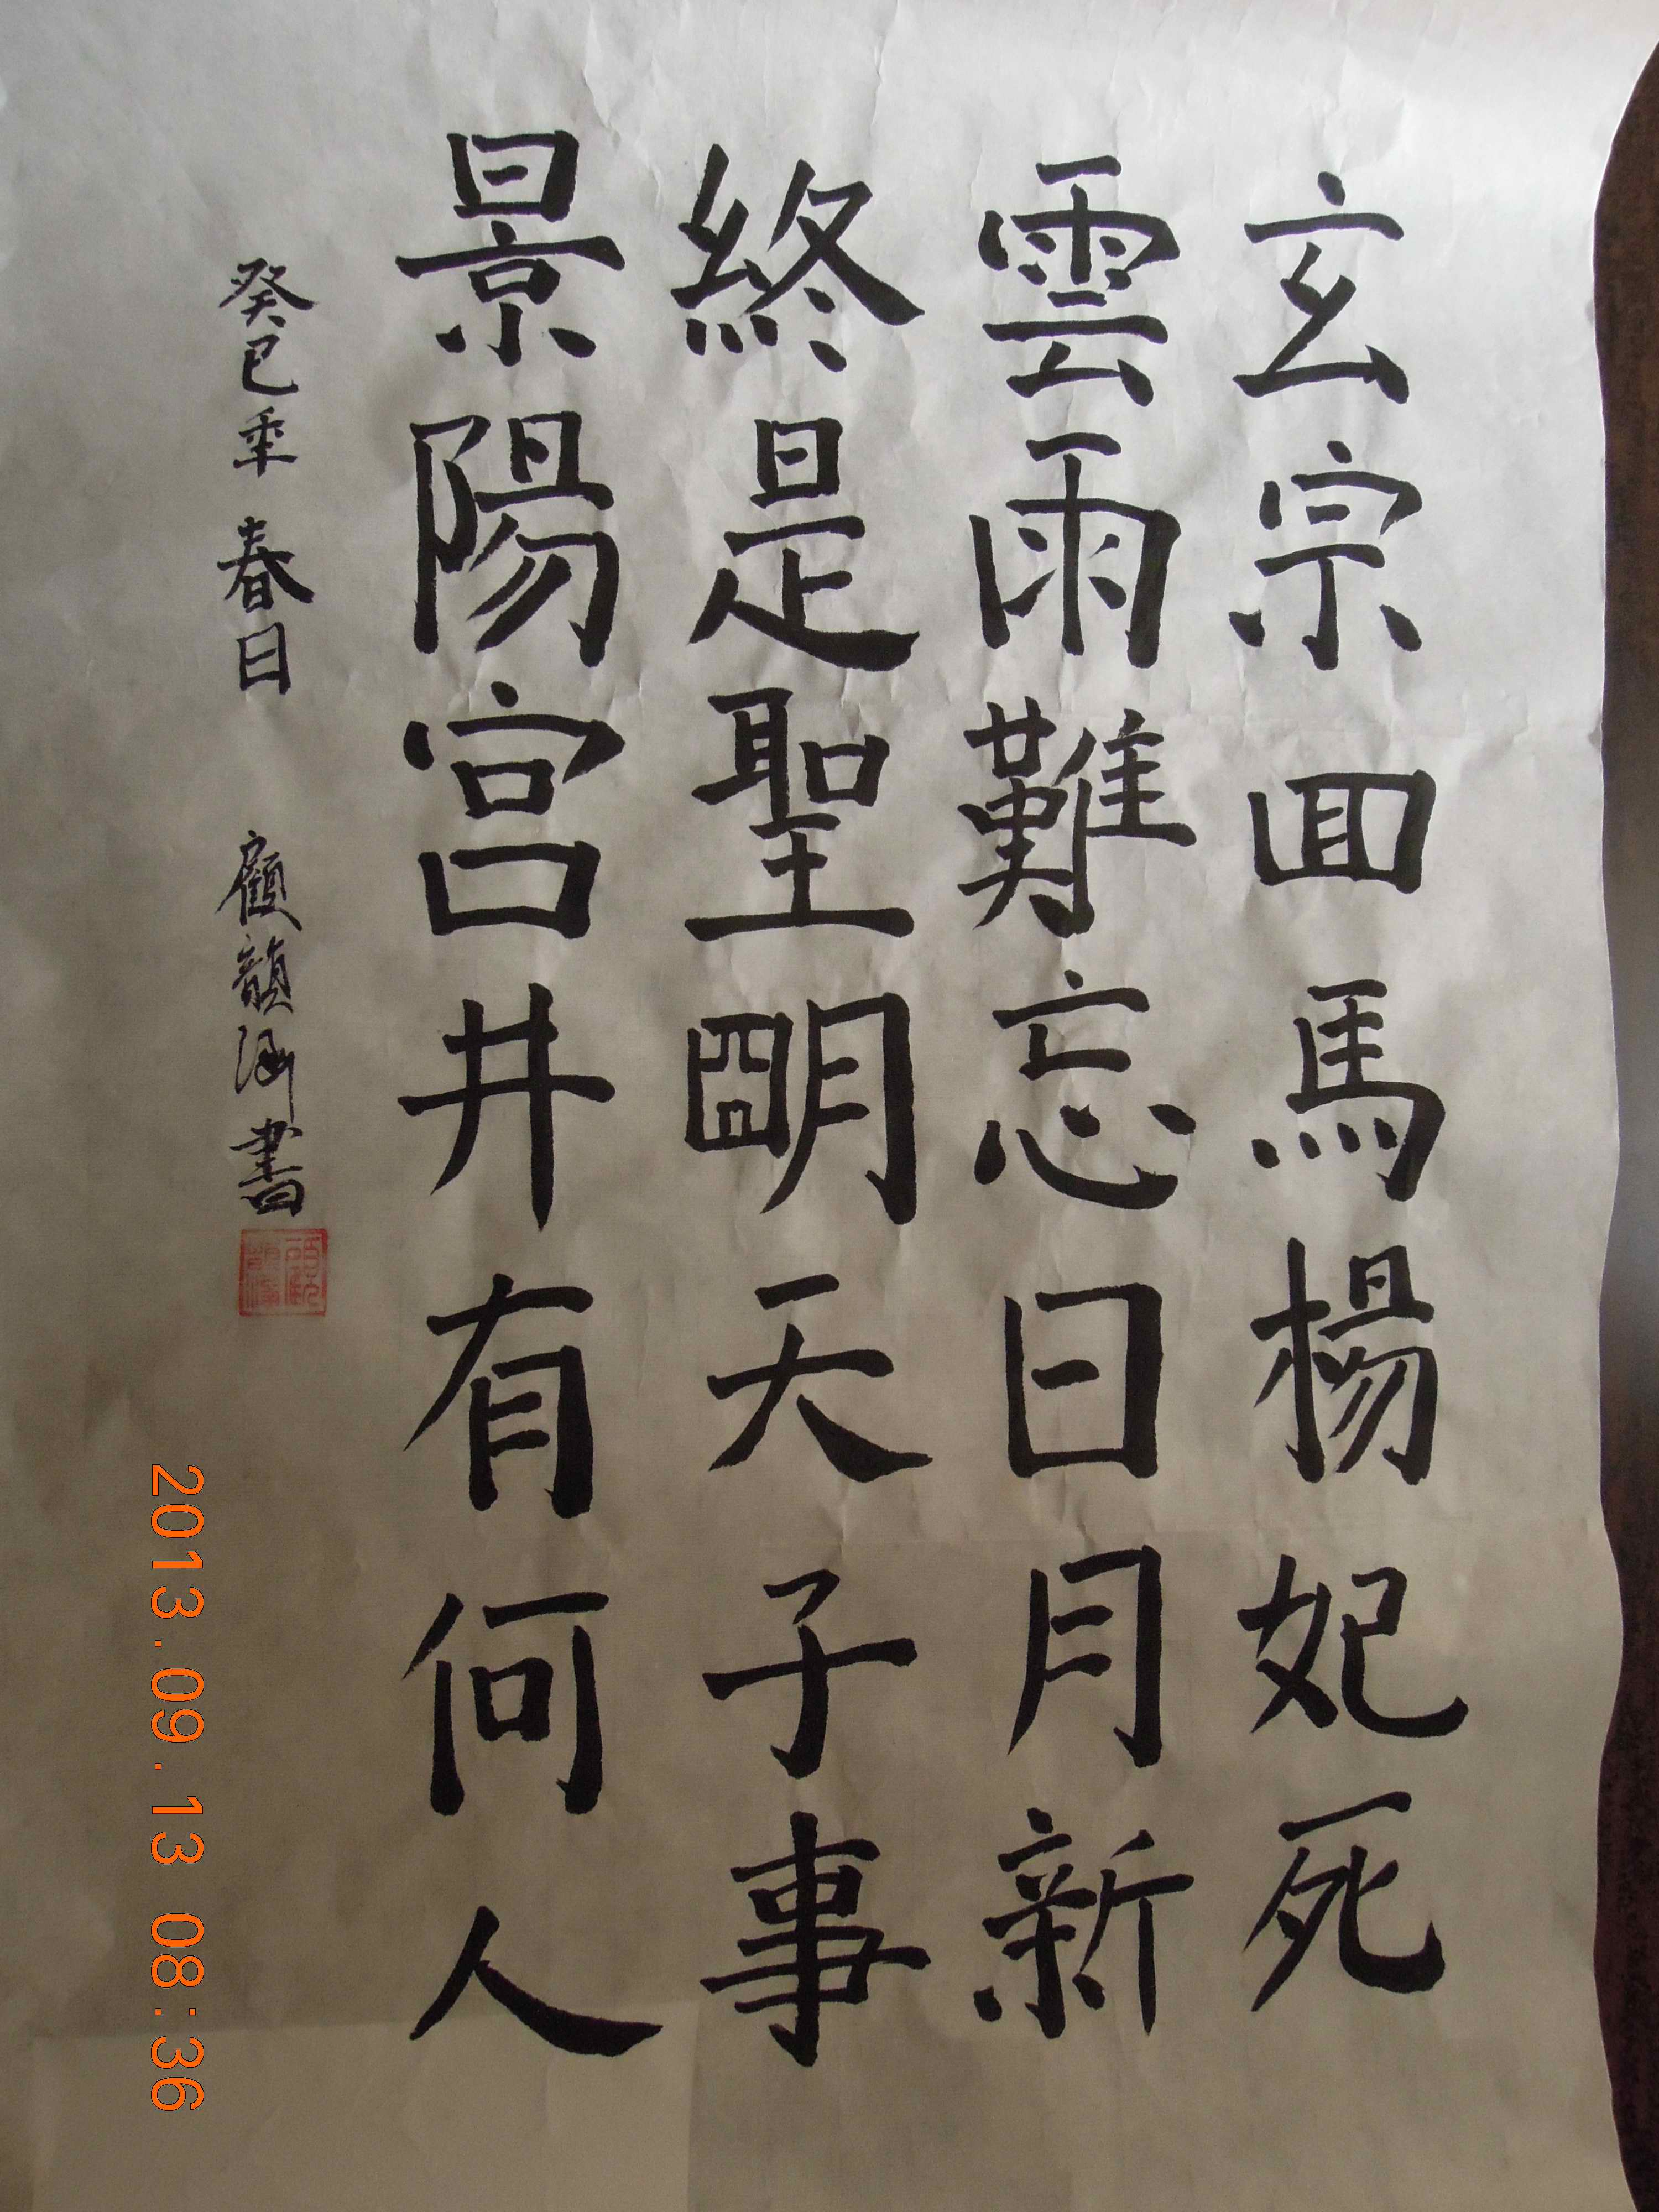 玄宗回馬楊妃死
雲雨難忘日月新
終是聖明天子事
景陽宮井有何人
癸巳年 春日 顧韻涵書
2013.09.13 08:36